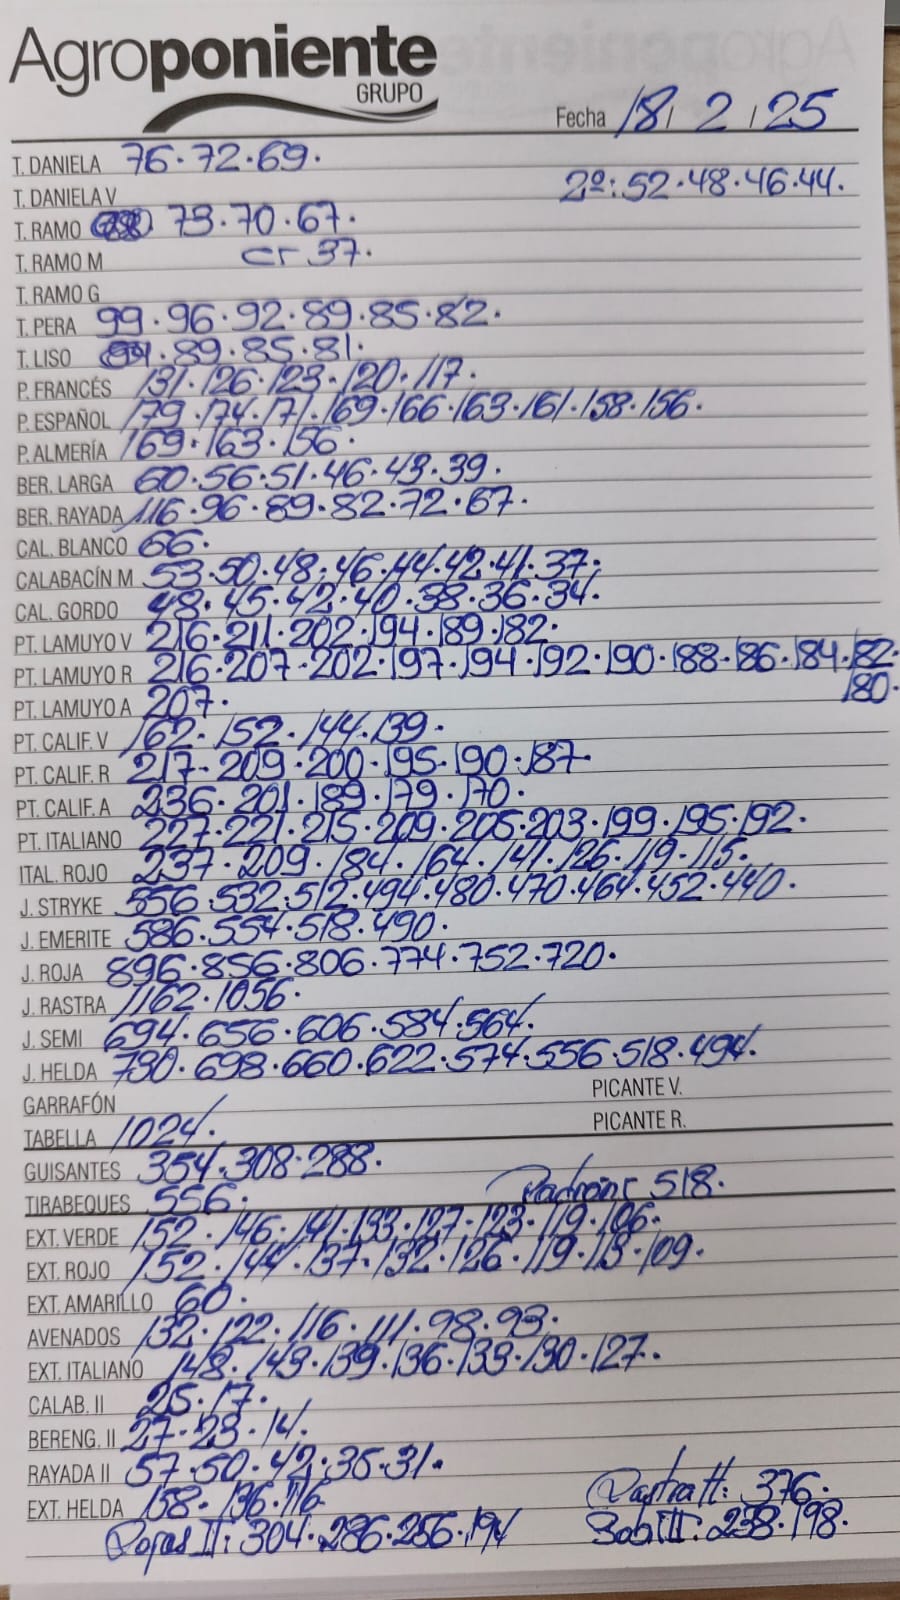 Agroponiente
GRUPO
Fecha 18 / 2 / 25
T. DANIELA 76·72·69·
T. DANIELA V 2º: 52·48·46·44·
T. RAMO 73·70·67·
T. RAMO M cr 37·
T. RAMO G
T. PERA 99·96·92·89·85·82·
T. LISO 89·85·81·
P. FRANCÉS 131·126·123·120·117·
P. ESPAÑOL 179·174·171·169·166·163·161·158·156·
P. ALMERÍA 169·163·156·
BER. LARGA 60·56·51·46·43·39·
BER. RAYADA 116·96·89·82·72·67·
CAL. BLANCO 66·
CALABACÍN M 53·50·48·46·44·42·41·37·
CAL. GORDO 48·45·42·40·38·36·34·
PT. LAMUYO V 216·211·202·194·189·182·
PT. LAMUYO R 216·207·202·197·194·192·190·188·186·184·182·
180·
PT. LAMUYO A 207·
PT. CALIF. V 162·152·144·139·
PT. CALIF. R 217·209·200·195·190·187·
PT. CALIF. A 236·201·189·179·170·
PT. ITALIANO 227·221·215·209·205·203·199·195·192·
ITAL. ROJO 237·209·184·164·141·126·119·115·
J. STRYKE 556·532·512·494·480·470·464·452·440·
J. EMERITE 586·554·518·490·
J. ROJA 896·856·806·774·752·720·
J. RASTRA 1162·1056·
J. SEMI 694·656·606·584·564·
J. HELDA 730·698·660·622·574·556·518·494·
GARRAFÓN PICANTE V.
TABELLA 1024· PICANTE R.
GUISANTES 354·308·288·
TIRABEQUES 556· Padron: 518·
EXT. VERDE 152·146·141·133·127·123·119·106·
EXT. ROJO 152·144·137·132·126·119·113·109·
EXT. AMARILLO 60·
AVENADOS 132·122·116·111·98·93·
EXT. ITALIANO 148·143·139·136·133·130·127·
CALAB. II 25·17·
BERENG. II 27·23·14·
RAYADA II 57·50·42·35·31·
EXT. HELDA 158·136·116 Rastra II: 376·
Rojas II: 304·286·256·194 Bobi II: 238·198·